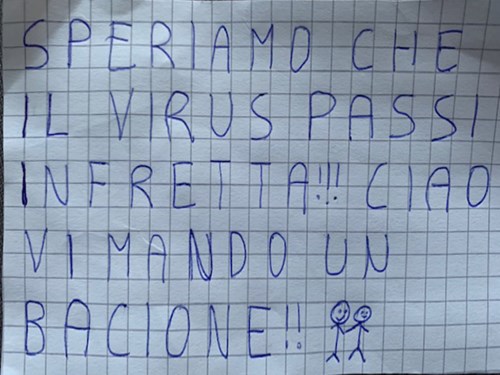 SPERIAMO CHE
IL VIRUS PASSI
INFRETTA!!! CIAO
VI MANDO UN
BACIONE!!